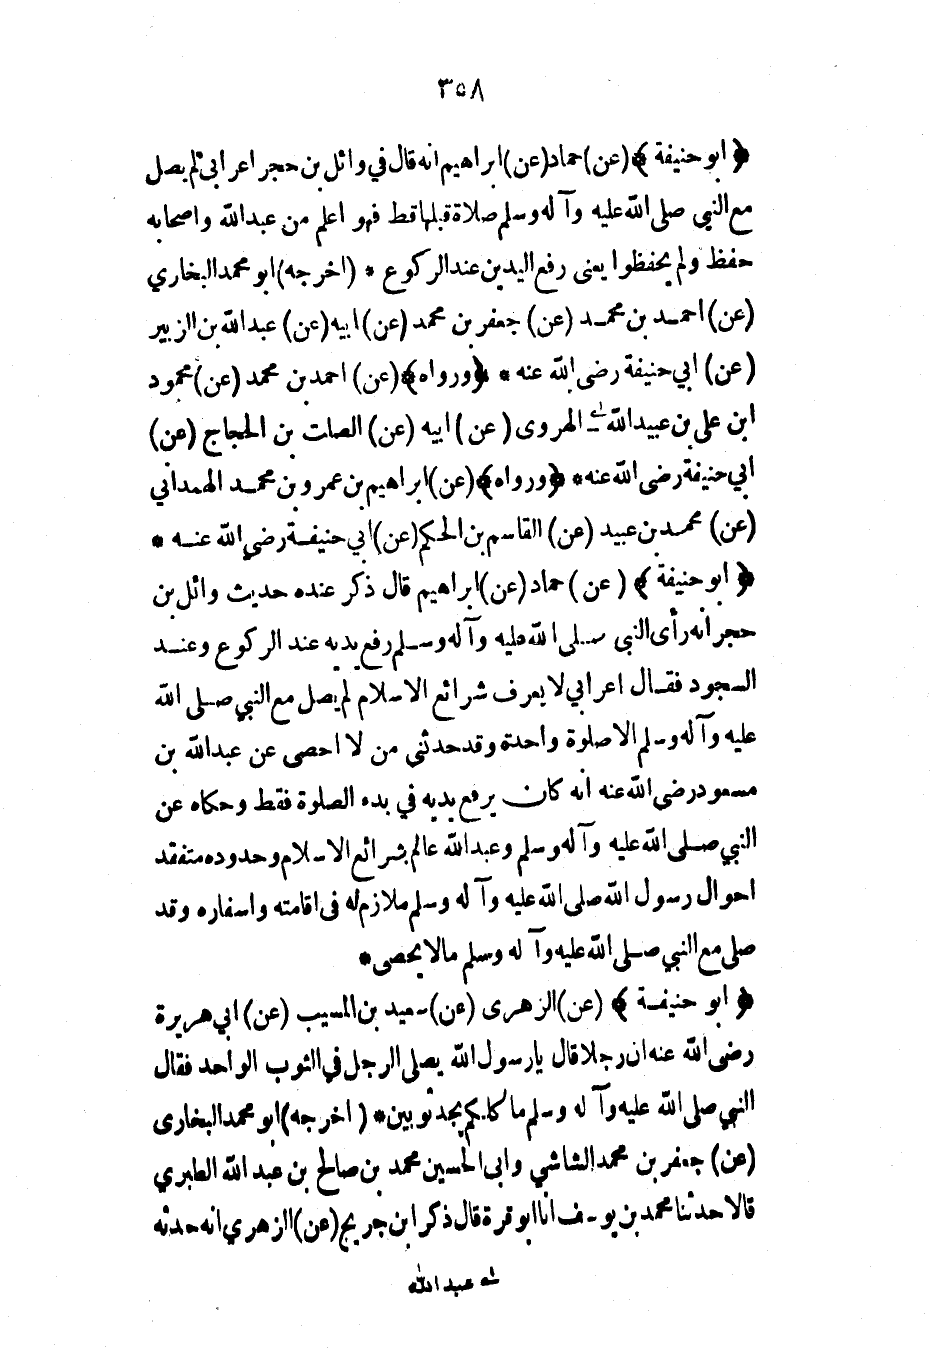 ٣٥٨
﴿ ابو حنيفة ﴾ (عن) حماد (عن) ابراهيم انه قال في وائل بن حجر اعرابي لم يصل
مع النبي صلى الله عليه وآله وسلم صلاة قبلها قط فهو اعلم من عبدالله واصحابه
حفظ ولم يحفظوا يعنى رفع اليدين عند الركوع * (اخرجه) ابو محمد البخاري
(عن) احمد بن محمد (عن) جعفر بن محمد (عن) ابيه (عن) عبدالله بن الزبير
(عن) ابي حنيفة رضى الله عنه * ﴿ورواه﴾ (عن) احمد بن محمد (عن) محمود
ابن على بن عبيدالله الهروى (عن) ابيه (عن) الصلت بن الحجاج (عن)
ابي حنيفة رضى الله عنه * ﴿ورواه﴾ (عن) ابراهيم بن عمرو بن محمد الهمداني
(عن) محمد بن عبيد (عن) القاسم بن الحكم (عن) ابي حنيفة رضي الله عنه *
﴿ ابو حنيفة ﴾ (عن) حماد (عن) ابراهيم قال ذكر عنده حديث وائل بن
حجر انه رأى النبي صلى الله عليه وآله وسلم رفع يديه عند الركوع وعند
السجود فقال اعرابي لا يعرف شرائع الاسلام لم يصل مع النبي صلى الله
عليه وآله وسلم الا صلوة واحدة وقد حدثني من لا احصى عن عبدالله بن
مسعود رضى الله عنه انه كان يرفع يديه في بدء الصلوة فقط وحكاه عن
النبي صلى الله عليه وآله وسلم وعبدالله عالم بشرائع الاسلام وحدوده متفقد
احوال رسول الله صلى الله عليه وآله وسلم ملازم له فى اقامته واسفاره وقد
صلى مع النبي صلى الله عليه وآله وسلم مالا يحصى *
﴿ ابو حنيفة ﴾ (عن) الزهرى (عن) سعيد بن المسيب (عن) ابي هريرة
رضى الله عنه ان رجلا قال يا رسول الله يصلى الرجل في الثوب الواحد فقال
النبي صلى الله عليه وآله وسلم ما كلكم يجد ثوبين * (اخرجه) ابو محمد البخارى
(عن) جعفر بن محمد الشاشي وابى الحسين محمد بن صالح بن عبد الله الطبري
قالا حدثنا محمد بن يوسف انا ابو قرة قال ذكر ابن جريج (عن) الزهري انه حدثه
عبدالله